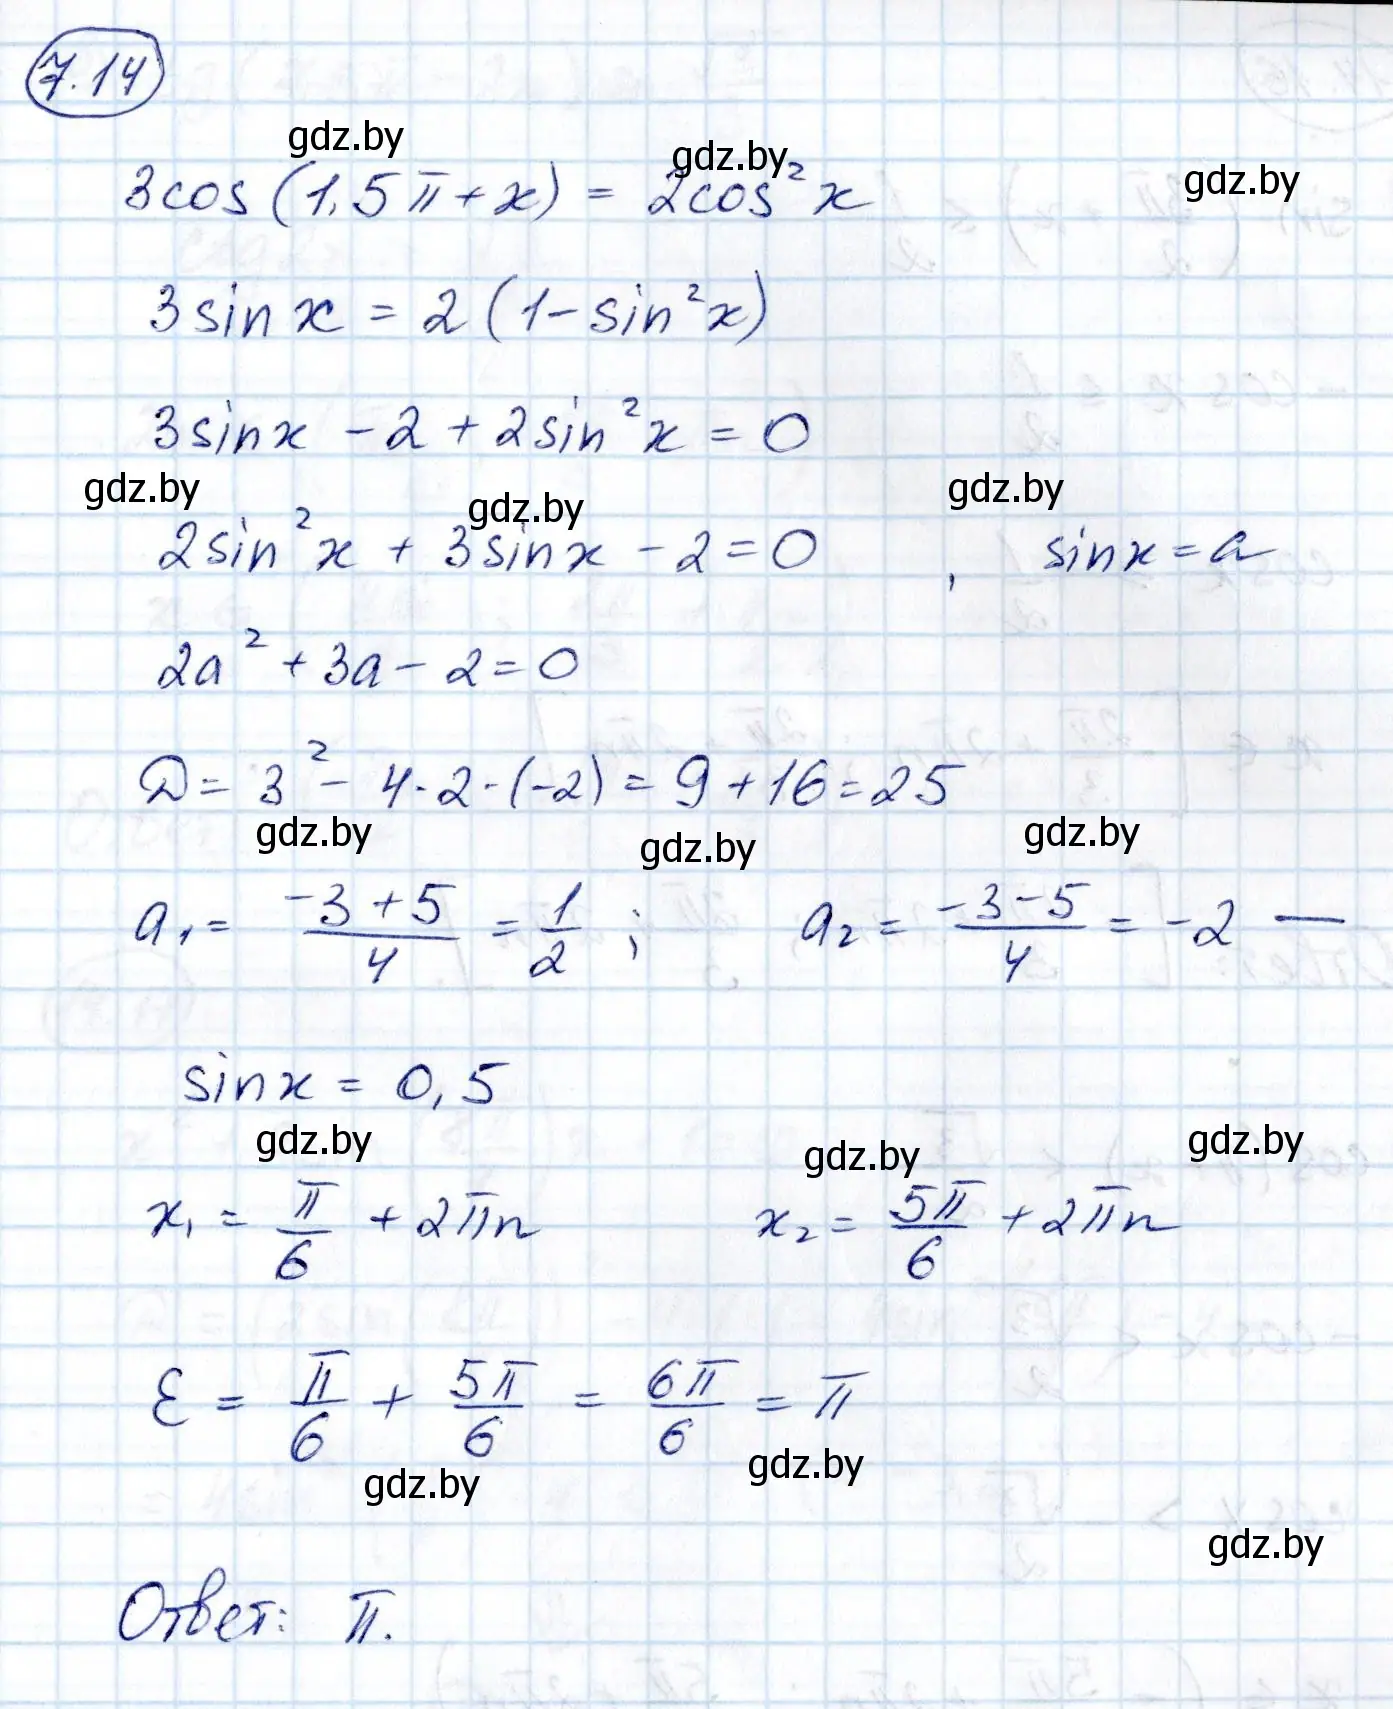 7.14
gdz.by gdz.by gdz.by
3cos(1,5π+x) = 2cos²x
3sinx = 2(1-sin²x)
3sinx - 2 + 2sin²x = 0
gdz.by gdz.by gdz.by
2sin²x + 3sinx - 2 = 0 , sinx = a
2a² + 3a - 2 = 0
D = 3² - 4·2·(-2) = 9 + 16 = 25
gdz.by gdz.by gdz.by
a₁ = (-3+5)/4 = 1/2 ; a₂ = (-3-5)/4 = -2 —
sinx = 0,5
gdz.by gdz.by gdz.by
x₁ = π/6 + 2πn x₂ = 5π/6 + 2πn
Ɛ = π/6 + 5π/6 = 6π/6 = π
gdz.by gdz.by
gdz.by
Ответ: π.